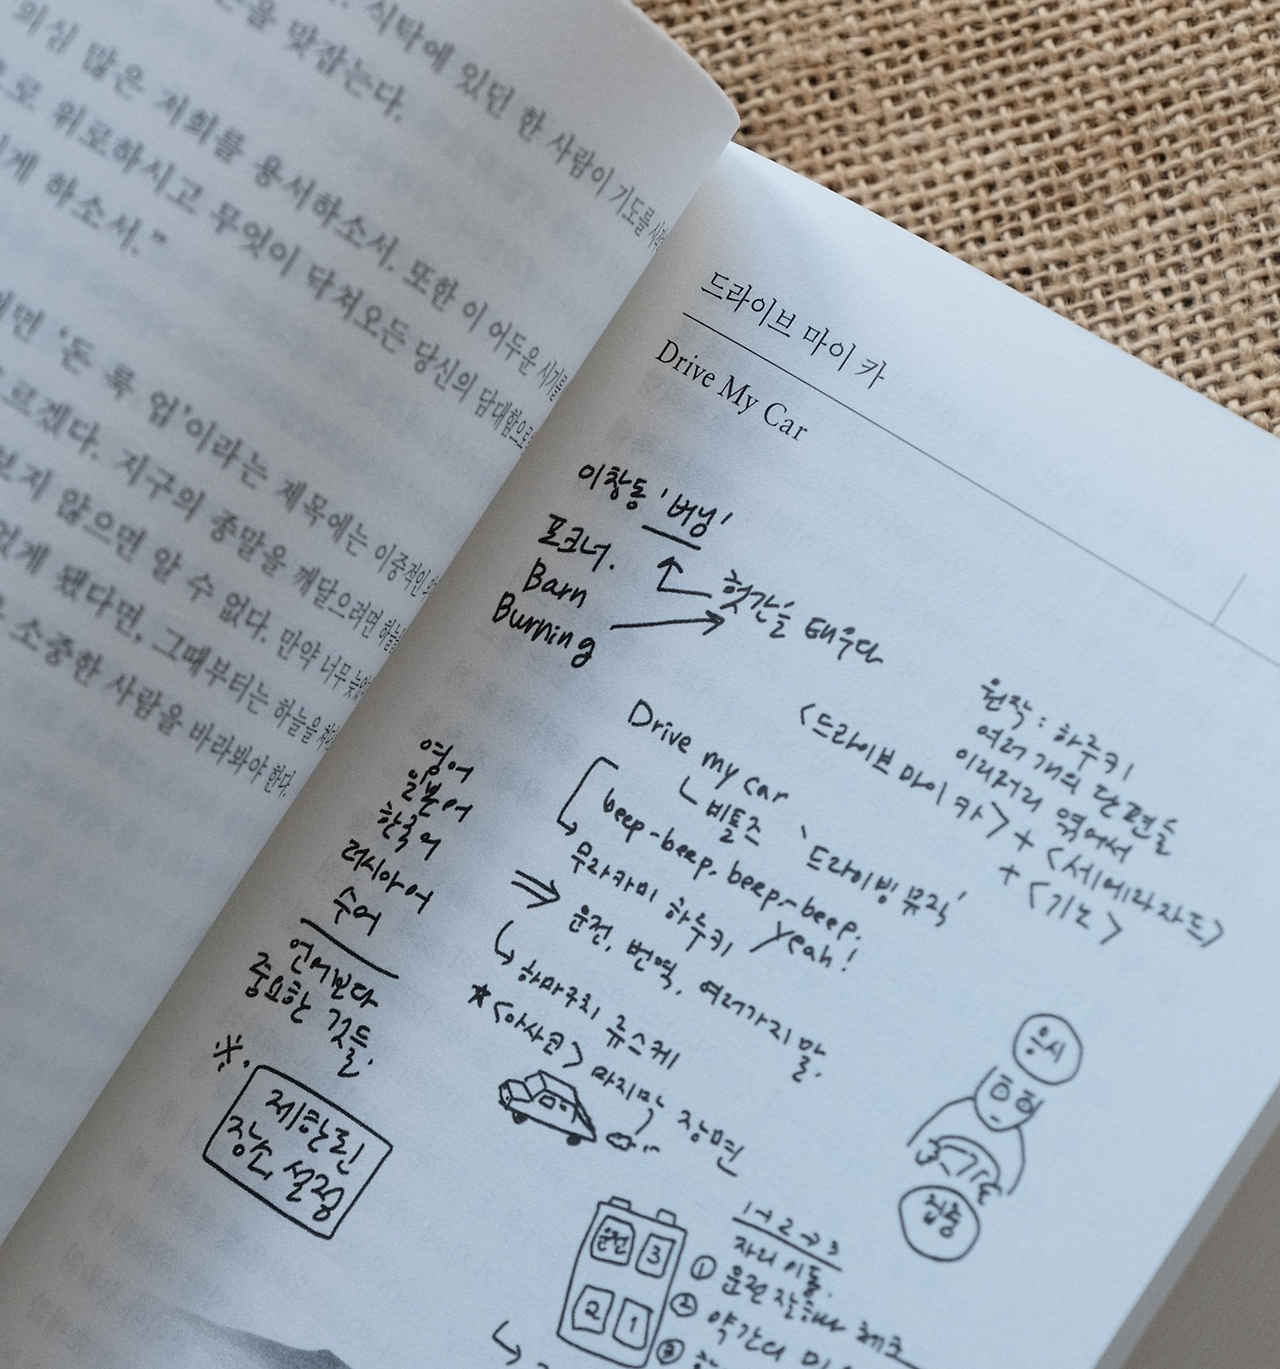 식탁에 있던 한 사람이 기도를
을 맞잡는다.
의심 많은 저희를 용서하소서. 또한 이 어두운 시기를
으로 위로하시고 무엇이 닥쳐오든 당신의 담대함으로
하소서.”
‘돈 룩 업’이라는 제목에는 이중적인
르겠다. 지구의 종말을 깨달으려면
보지 않으면 알 수 없다. 만약 너무 늦었
없게 됐다면, 그때부터는 하늘을
소중한 사람을 바라봐야 한다.
드라이브 마이 카
Drive My Car
이창동 '버닝'
포크너.
Barn
Burning
헛간을 태우다
원작 : 하루키
여러 개의 단편들
이리저리 엮어서
<드라이브 마이 카> + <세에라자드>
+ <기노>
Drive my car
비틀즈 '드라이빙 뮤직'
beep-beep, beep-beep.
Yeah!
무라카미 하루키
⇒ 운전, 번역, 여러가지 말.
하마구치 류스케
★<아사코> 마지막 장면
영어
일본어
한국어
러시아어
수어
언어보다
중요한 것들.
※.
제한된
장소 설정
응시
집중
운전 3
2 1
1→2→3
자리 이동.
① 운전 잘하나 체크
② 약간 더
③